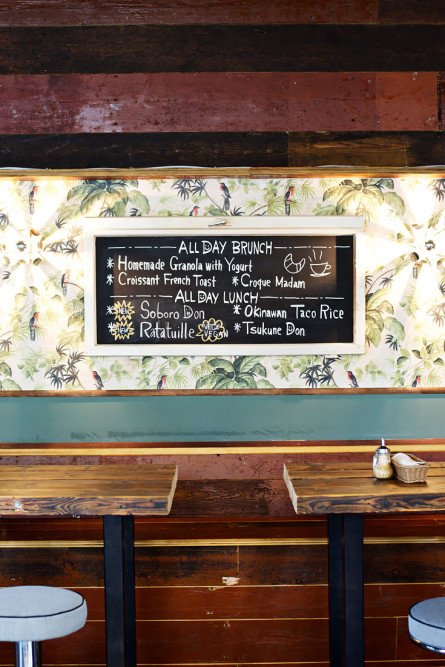 ALL DAY BRUNCH
* Homemade Granola with Yogurt
* Croissant French Toast * Croque Madam
ALL DAY LUNCH
NEW Soboro Don * Okinawan Taco Rice
NEW Ratatuille VEGAN * Tsukune Don